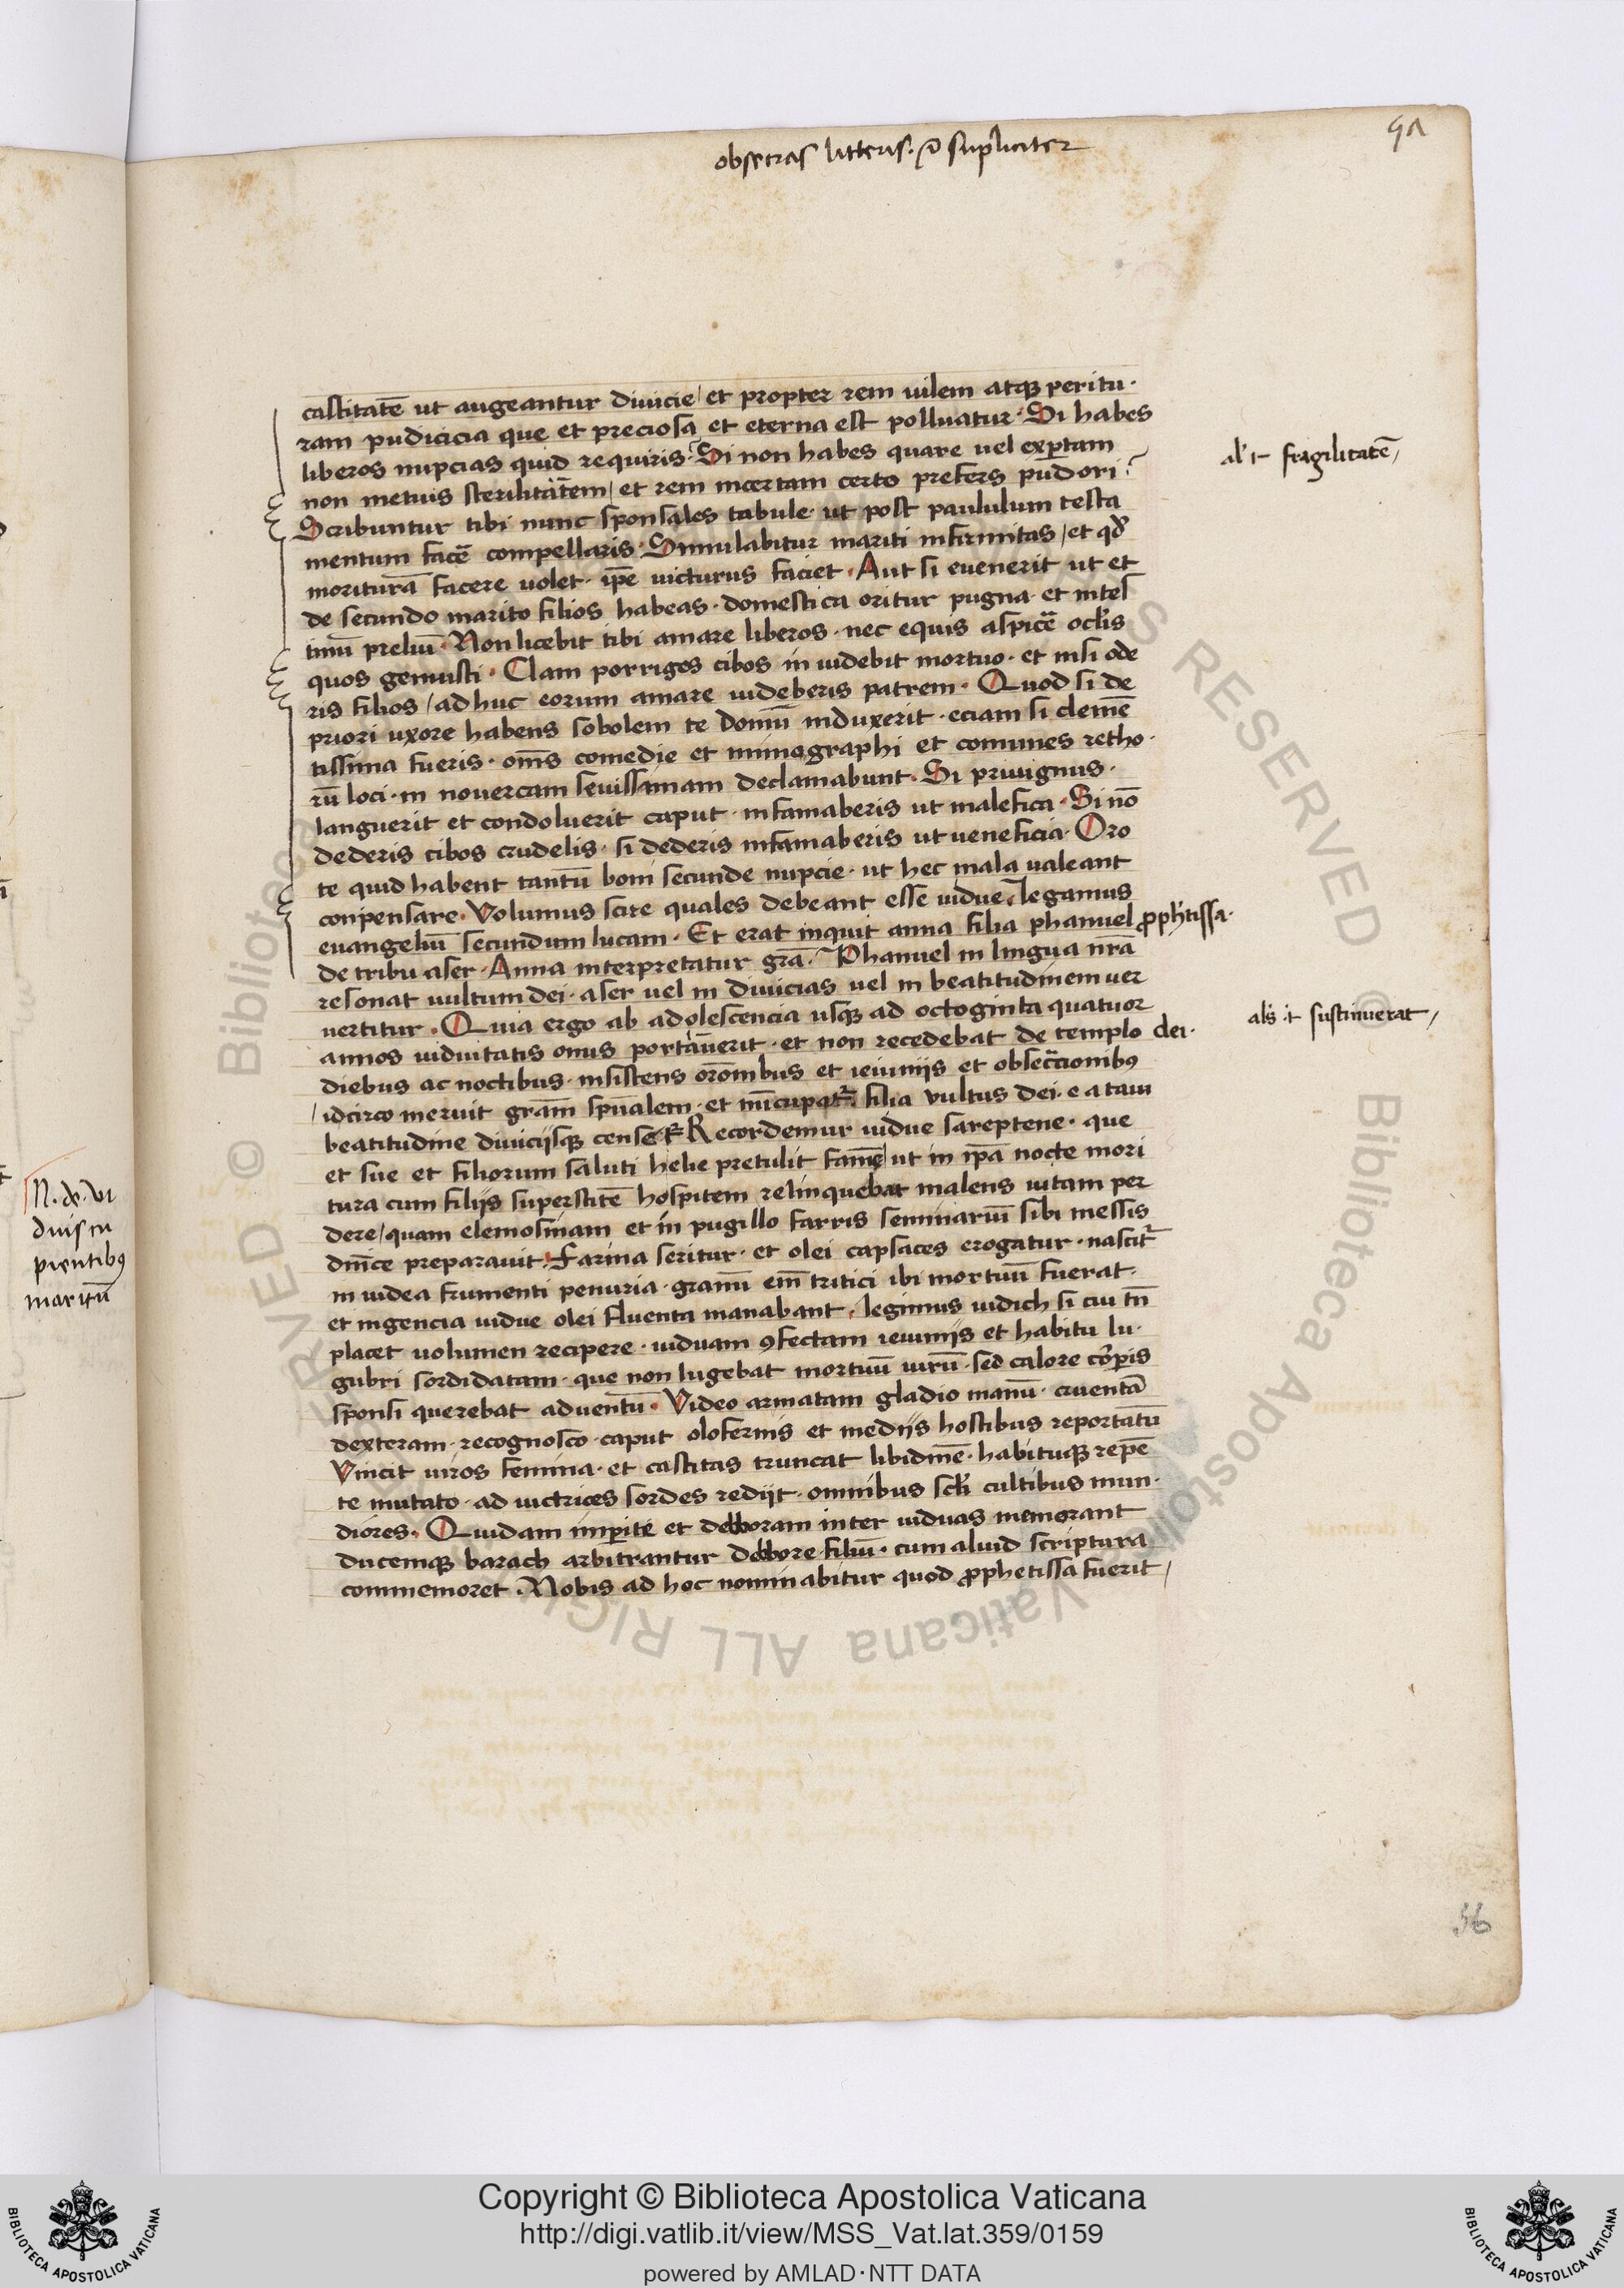 obsecras litteris. et supliciter
castitatē ut augeantur divicie / et propter rem uilem atqꝫ peritu·
ram pudicicia que et preciosa et eterna est polluatur· Si habes
liberos nupcias quid requiris? Si non habes quare uel exꝑtam
non metuis sterilitatem / et rem incertam certo prefers pudori?
al' ⁊ fragilitatē /
Scribuntur tibi nunc sponsales tabule· ut post paululum testa
mentum facē compellaris· Simulabitur mariti infirmitas / et qd'
moriturā facere uolet· ip̄e uicturus faciet· Aut si euenerit ut et
de secundo marito filios habeas· domestica oritur pugna· et intes
tinū preliū· Non licebit tibi amare liberos· nec equis aspicē oc'lis
quos genuisti· Clam porriges cibos in uidebit mortuo· et nisi ode
ris filios / ad huc eorum amare uideberis patrem· Quod si de
priori uxore habens sobolem te domū induxerit· eciam si clemē
tissima fueris· om̄s comedie et mimographi et comunes retho·
rū loci· in nouercam seuissimam declamabunt· Si priuignus·
languerit et condoluerit caput· infamaberis ut malefica· Si nō
dederis cibos crudelis· si dederis infamaberis ut ueneficia· Oro
te quid habent tantū boni secunde nupcie· ut hec mala ualeant
conpensare· Volumus scire quales debeant esse uidue· legamus
euangeliū secundum lucam· Et erat inquit anna filia phanuel ꝓph'tissa·
de tribu aser· Anna interpretatur gr̄a· Phanuel in lingua nr̄a
resonat uultum dei· aser uel in diuicias uel in beatitudinem uer
uertitur· Quia ergo ab adolescencia usqꝫ ad octoginta quatuor
annos uiduitatis onus portauerit· et non recedebat de templo dei·
als ⁊ sustinuerat /
diebus ac noctibus· insistens or̄onibus et ieiuniis et obsecrācionibꝰ
/ idcirco meruit grām sp̄ualem· et nūcupatr̄ filia uultus dei· e a taui
beatitudine diuiciisqꝫ censetr̄ Recordemur uidue sareptene· que
et sue et filiorum saluti helie pretulit famē / ut in ip̄a nocte mori
tura cum filiis superstitē hospitem relinquebat malens uitam per
dere / quam elemosinam et in pugillo farris seminariū sibi messis
dn̄ice preparauit· Farina seritur· et olei capsaces erogatur· nascitr̄
in iudea frumenti penuria· granū em̄ tritici ibi mortuū fuerat·
et ingencia uidue olei fluenta manabant· legimus iudich si cui tn̄
placet uolumen recipere· uiduam ꝯfectam ieiuniis et habitu lu·
gubri sordidatam· que non lugebat mortuū uirū· sed calore cor̄pis
sponsi querebat aduentū· Video armatam gladio manū· cruentā
dexteram· recognosco caput olofernis et mediis hostibus reportatū
Vincit uiros femina· et castitas truncat libidinē· habituqꝫ repē
te mutato· ad uictrices sordes rediit· omnibus sc'li cultibus mun·
diores· Quidam imꝑite et debboram inter uiduas memorant
ducemqꝫ barach arbitrantur debbore filiū· cum aliud scriptura
commemoret· Nobis ad hoc nominabitur quod ꝓphetissa fuerit /
56
N. de. vi
duis cu
pientibꝰ
maritū
Copyright © Biblioteca Apostolica Vaticana
http://digi.vatlib.it/view/MSS_Vat.lat.359/0159
powered by AMLAD·NTT DATA
BIBLIOTECA APOSTOLICA VATICANA
BIBLIOTECA APOSTOLICA VATICANA